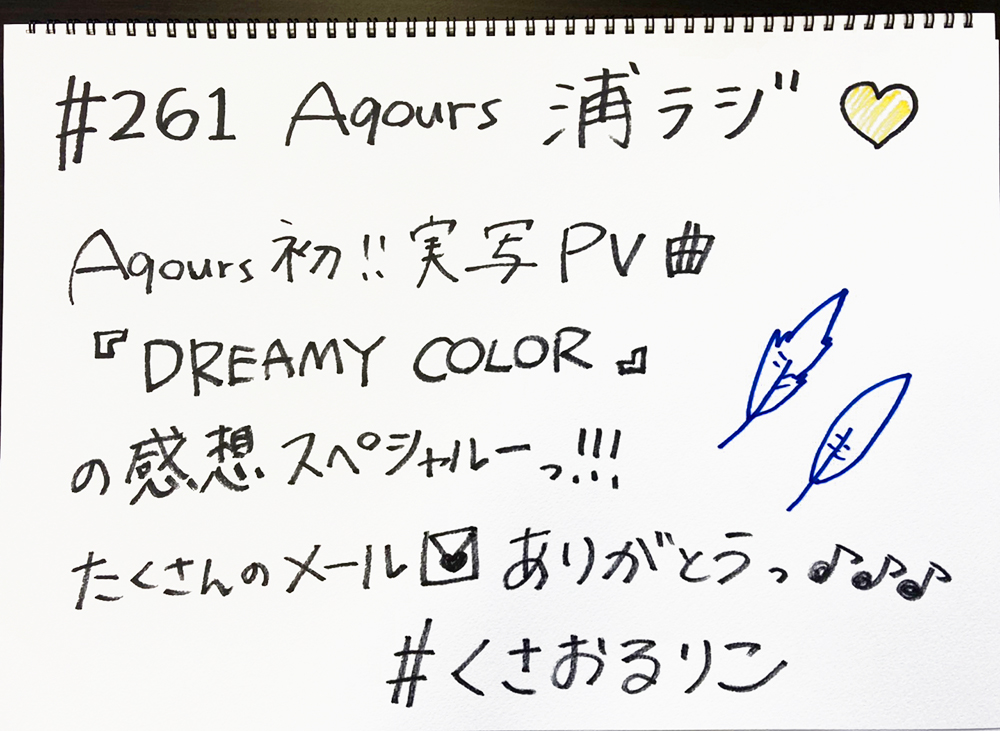 #261 Aqours 浦ラジ
Aqours初!!実写PV曲
『DREAMY COLOR』
の感想スペシャルーっ!!!
たくさんのメールありがとうっ♪♪♪
#くさおるりこ